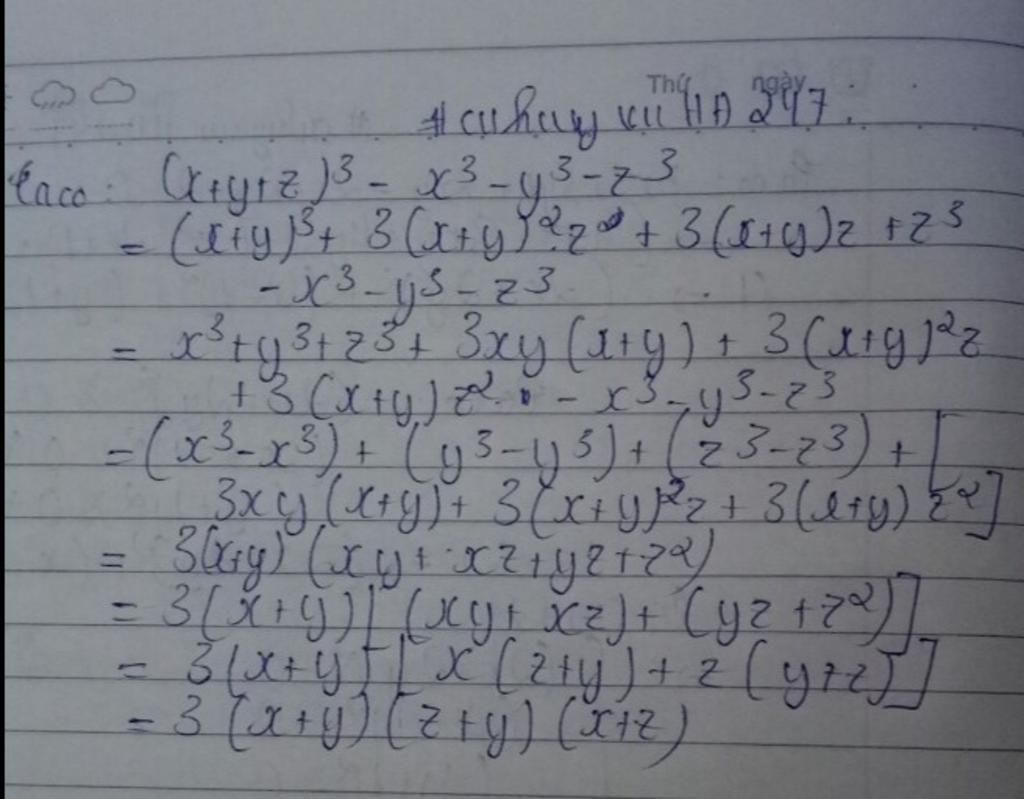 Thứ ngày
(x+y+z)³ - x³ - y³ - z³
= (x+y)³ + 3(x+y)².z + 3(x+y)z + z³
- x³ - y³ - z³
= x³ + y³ + z³ + 3xy(x+y) + 3(x+y)²z
+ 3(x+y)z² - x³ - y³ - z³
= (x³ - x³) + (y³ - y³) + (z³ - z³) + [
3xy(x+y) + 3(x+y)²z + 3(x+y)z²]
= 3(x+y)(xy + xz + yz + z²)
= 3(x+y)[(xy + xz) + (yz + z²)]
= 3(x+y)[x(z+y) + z(y+z)]
= 3(x+y)(z+y)(x+z)